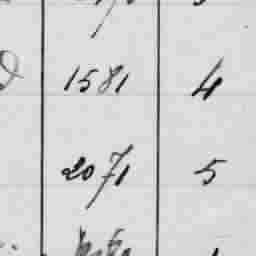 1581 4
2071 5